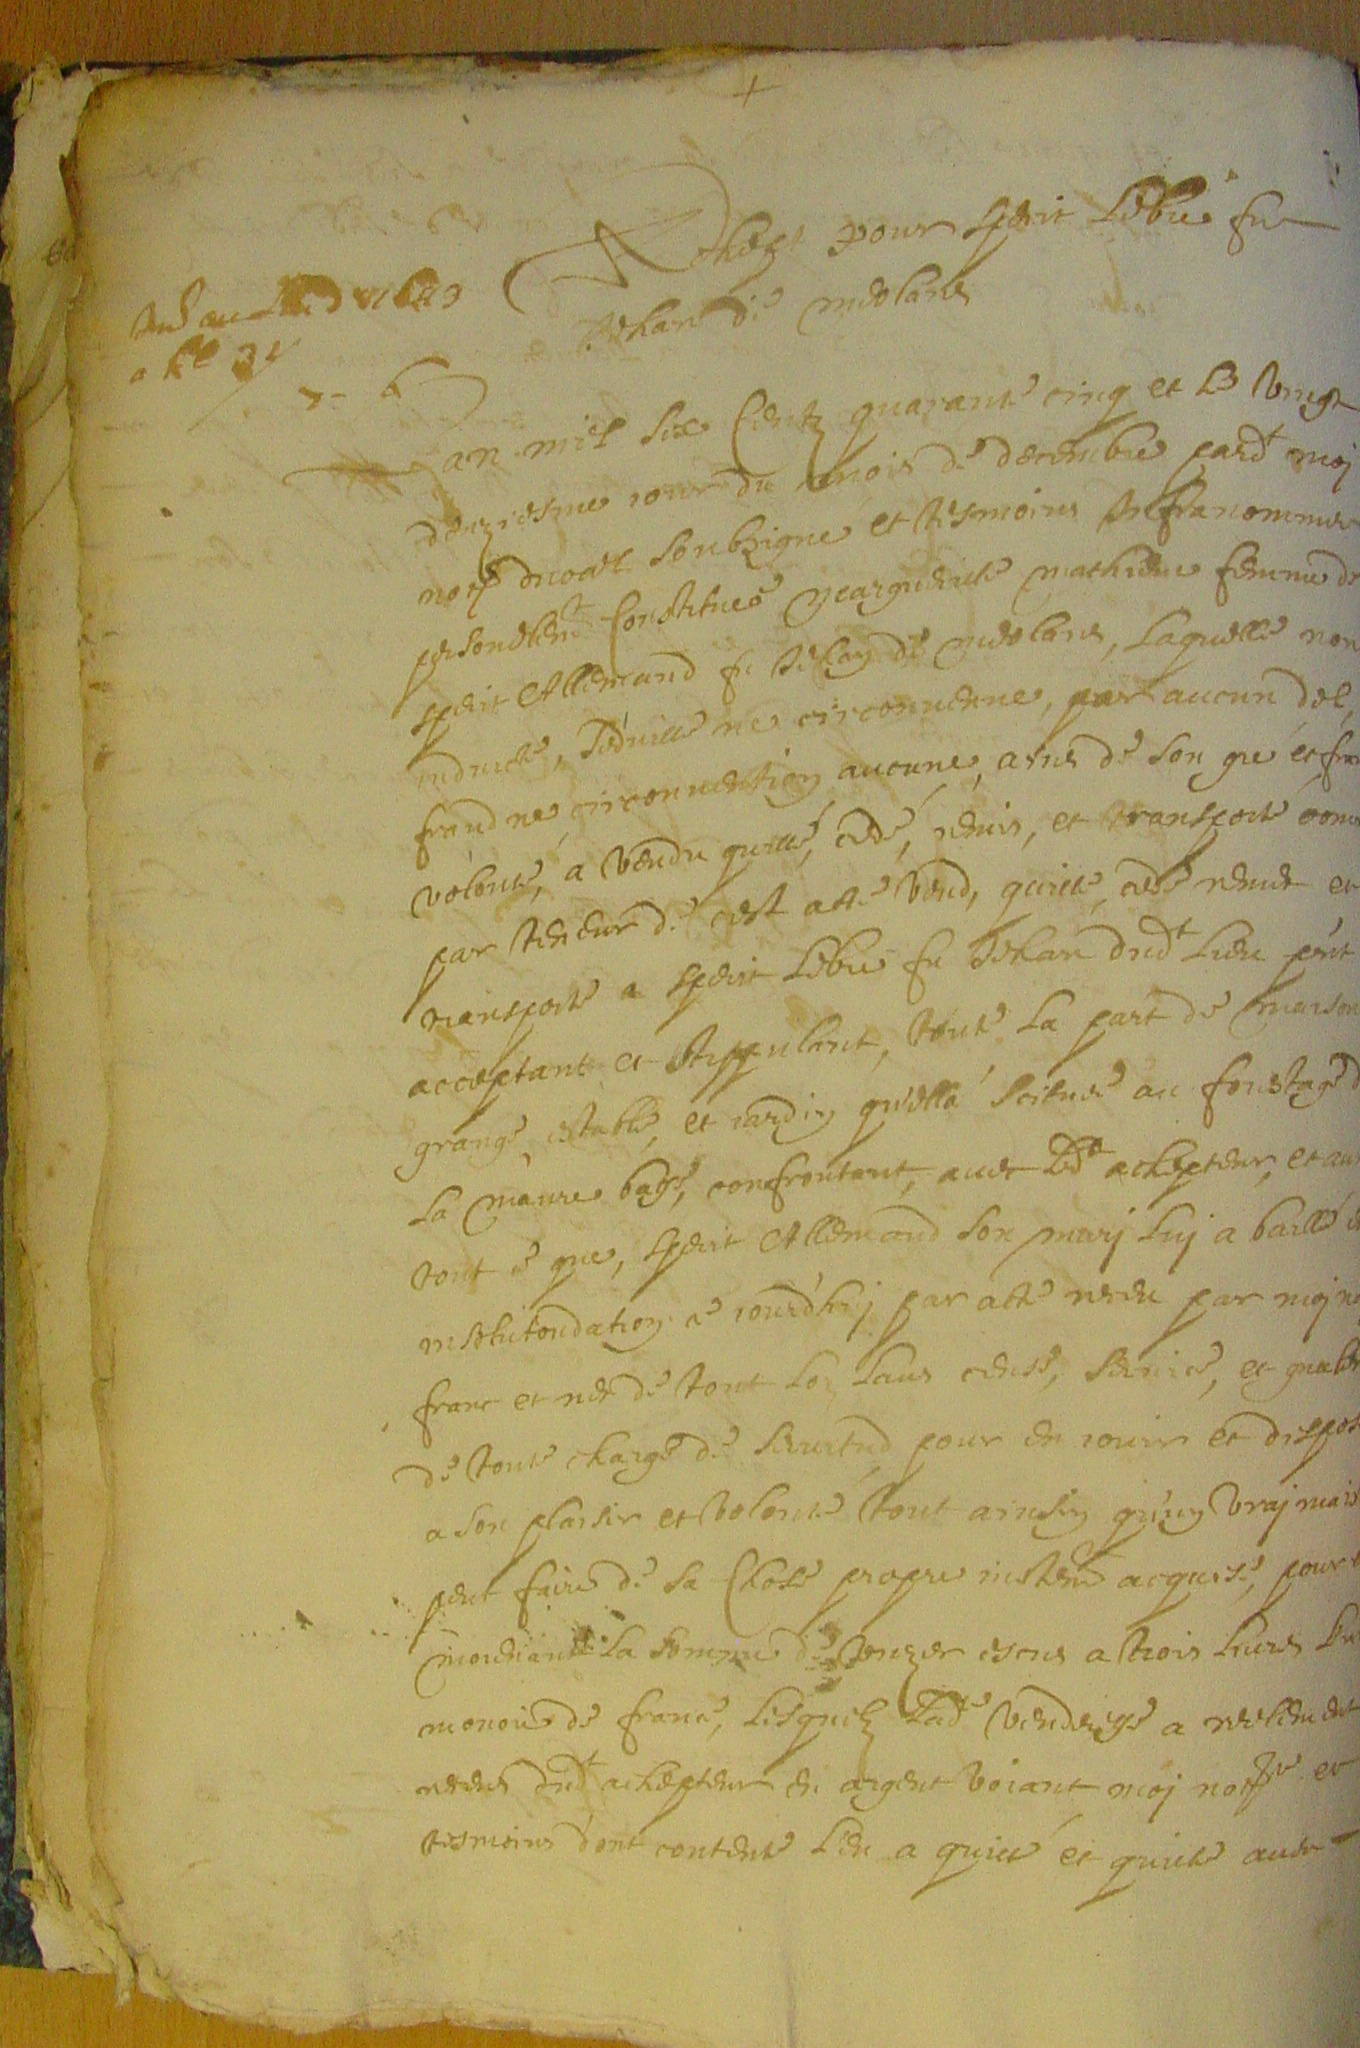 Achept pour Sperit Lebre fu
Jehan de meolans
L'an mil six Centz quarante cinq et le vingt
deuziesme jour du mois de decembre pard.t moy
not.re ducal soubzigne et tesmoins infranommes
personellem.t Constituee Marguerite mathieue femme de
Sperit Allemand fu Jehan de meolans, Laquelle non
induicte, seduitte ne circonuenue, par aucun dol,
fraud ne circonuention aucune, ains de son gre et fran
volonté, a vendu quitté, cedé, remis, et transporté com
par teneur de cest acte vend, quitte, cede remet et
transporte a Sperit Lebre fu Jehan dud.t Lieu p'nt
acceptant et stippulant, toute La part de maison
grange estable, et jardin qu'ella scitues au forestage d
La maure basse, confrontant, auec Led.t achepteur, et auec
tout ce que, Sperit Allemand son mary luy a baillé en
insolutondation ce jourd'huy par acte receu par moy no
franc et net de tout Lo Laus cense, seruice, et gnalem
de toute charge de seruitud pour en jouir et dispos
a son plaisir et volonté tout ainsin qu'un vray mais
peut faire de sa Chose propre justem.t acquise, pour e
moienant la somme de escus a trois liures
monoie de france, Lesquelz Lad.e venderesse a reelement
receus dud.t achepteur en argent voiant moy not.re et
tesmoins dont contente L'en a quitté et quitte auec